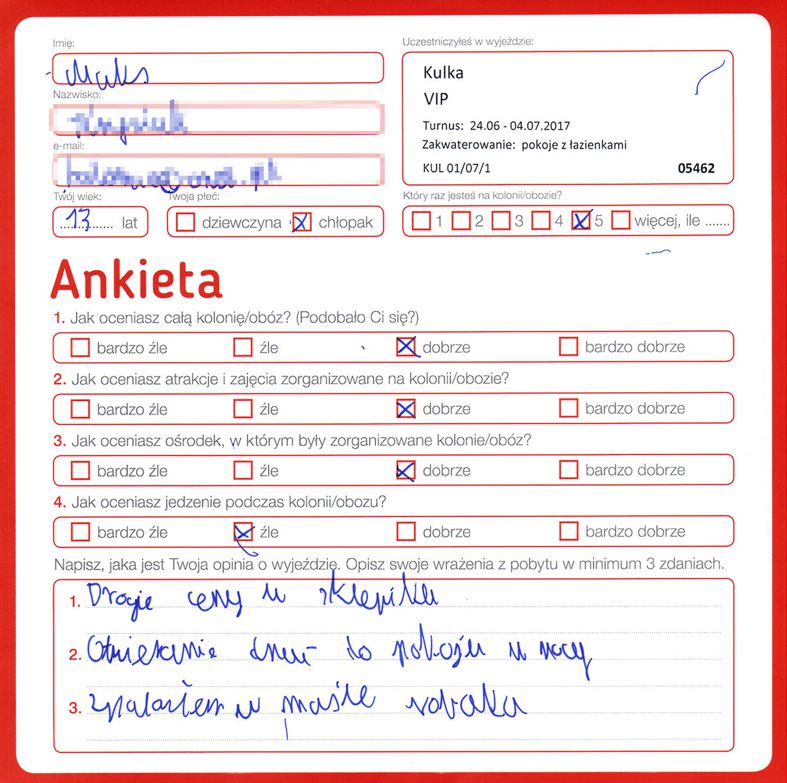 Imię:
Maks
Uczestniczyłeś w wyjeździe:
Kulka
VIP
Turnus: 24.06 - 04.07.2017
Zakwaterowanie: pokoje z łazienkami
KUL 01/07/1 05462
Nazwisko:
e-mail:
Twój wiek:
13 lat
Twoja płeć:
dziewczyna chłopak
Który raz jesteś na kolonii/obozie?
1 2 3 4 5 więcej, ile .......
Ankieta
1. Jak oceniasz całą kolonię/obóz? (Podobało Ci się?)
bardzo źle źle dobrze bardzo dobrze
2. Jak oceniasz atrakcje i zajęcia zorganizowane na kolonii/obozie?
bardzo źle źle dobrze bardzo dobrze
3. Jak oceniasz ośrodek, w którym były zorganizowane kolonie/obóz?
bardzo źle źle dobrze bardzo dobrze
4. Jak oceniasz jedzenie podczas kolonii/obozu?
bardzo źle źle dobrze bardzo dobrze
Napisz, jaka jest Twoja opinia o wyjeździe. Opisz swoje wrażenia z pobytu w minimum 3 zdaniach.
1. Drogie ceny w sklepiku
2. Otwieranie do pokoju w nocy
3. znalazłem w maśle robaka